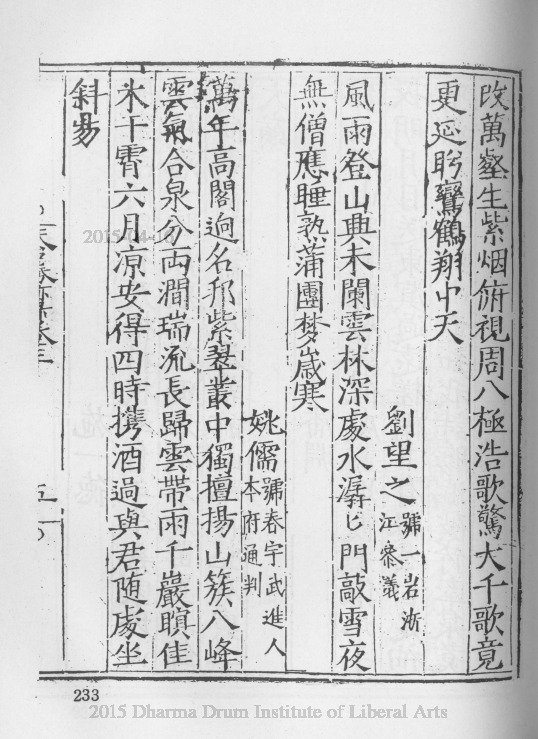 改萬壑生紫烟俯視周八極浩歌驚大千歌竟
更延䀪鸞鶴翔中天
劉望之 號一岩浙江叅議
風雨登山興未闌雲林深處水潺匕門敲雪夜
無僧應睡熟蒲團梦歲寒
姚儒 號春宇武進人本府通判
萬年高閣逈名邦紫翠叢中獨擅揚山簇八峰
雲氣合泉分両澗瑞流長歸雲帶雨千巖瞑佳
木干霄六月凉安得四時携酒過與君随處坐
斜昜
233
2015-04-10
2015 Dharma Drum Institute of Liberal Arts